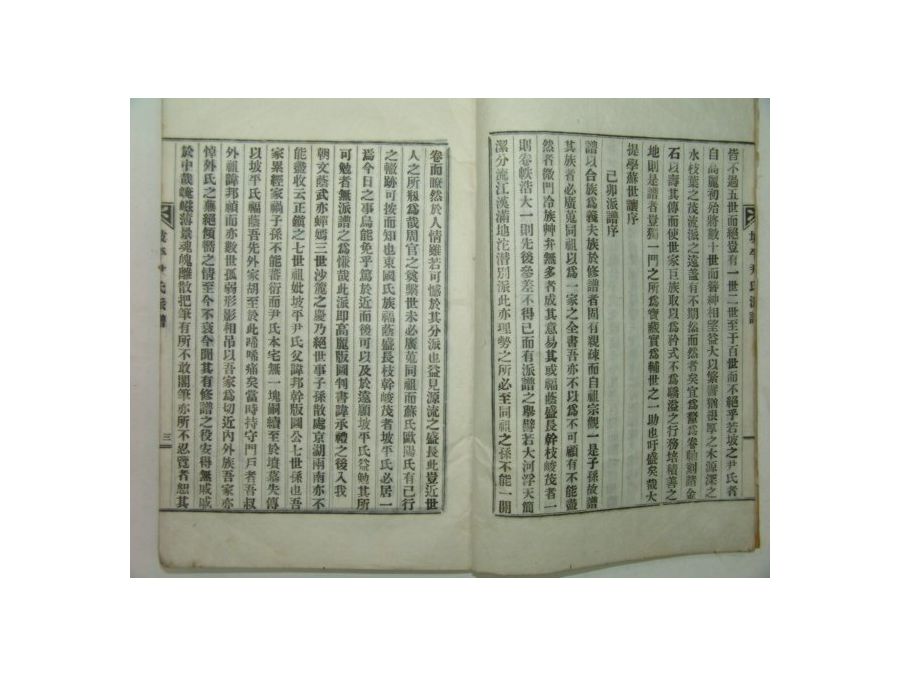 皆不過五世而絕豈有一世二世至于百世而不絕乎若坡之尹氏者
自高麗初始將數十世而簪紳相望益大以繁譬猶根厚之木源深之
水枝葉之茂流派之遠蓋有不期然而然者矣宜爲鳌爲卷軸刻諸金
石以壽其傳而使世家巨族取以爲矜式不爲驕溢之行務培積善之
地則是譜者豈獨一門之所爲寶藏實爲輔世之一助也吁盛矣哉大
提學蘇世讓序
己卯派譜序
譜以合族爲義夫族於修譜者固有親疎而自祖宗觀一是子孫故譜
其族者必廣蒐同祖以爲一家之全書吾亦不以爲不可顧有不能蓋
然者微門冷族艸弁無多者成其意易其或福蔭盛長幹枝峻茂者一
則卷帙浩大一則先後參差不得已而有派譜之擧譬若大河浮天簡
潔分流江漢滿地沱潛別派此亦理勢之所必至同祖之孫不能一開
卷而瞭然於人情雖若可憾於其分派也益見源流之盛長此豈近世
人之所刱爲哉周官之奠繫世未必廣蒐同祖而蘇氏歐陽氏有已行
之轍跡可按而知也東國氏族福蔭盛長枝幹峻茂者坡平氏必居一
爲今日之事烏能免乎篤於近而後可以及於遠願坡平氏益勉其所
可勉者無派譜之爲慊哉此派即高麗版圖判書諱承禮之後入我
朝文蔭武亦蟬嫣三世沙籠之慶乃絕世事子孫散處京湖兩南亦不
能盡收云正鎭之七世祖妣坡平尹氏父諱邦幹版圖公七世孫也吾
家累經家禍子孫不能蕃衍而尹氏本宅無一塊嗣續至於墳墓失傳
以坡平氏福蔭吾先外家胡至於此唏唏痛矣當時持守門戶者吾叔
外祖諱邦顧而亦數世孤弱形影相吊以吾家爲切近內外族吾家亦
悼外氏之蕪絕傾嚮之情至今不衰今聞其有修譜之役安得無戚戚
於中哉崦嵫薄景魂魄離散把筆有所不敢閣筆亦所不忍覽者恕其
坡平尹氏派譜
三